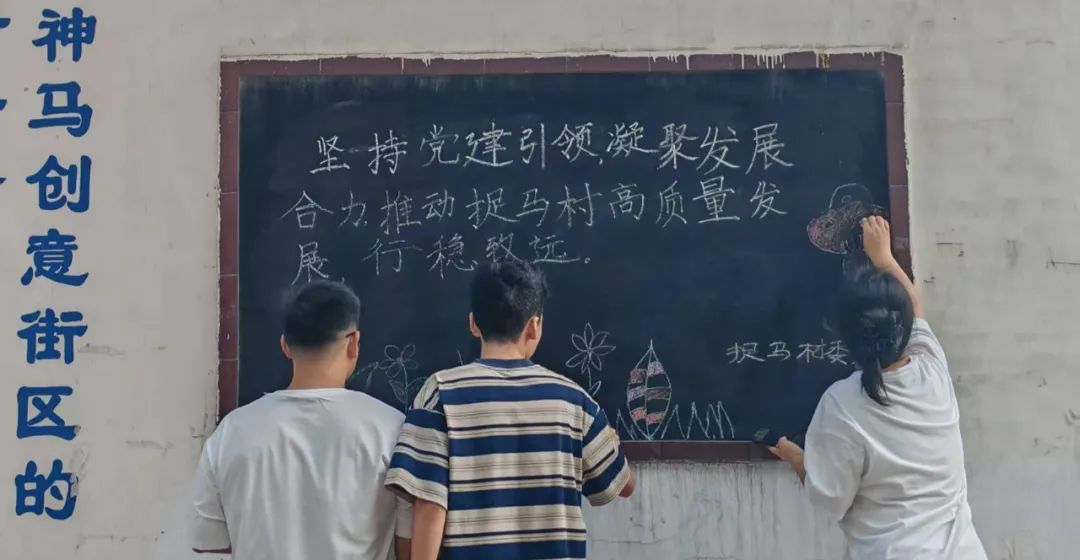 神马创意街区的
坚持党建引领凝聚发展
合力推动捉马村高质量发
展,行稳致远。
捉马村委